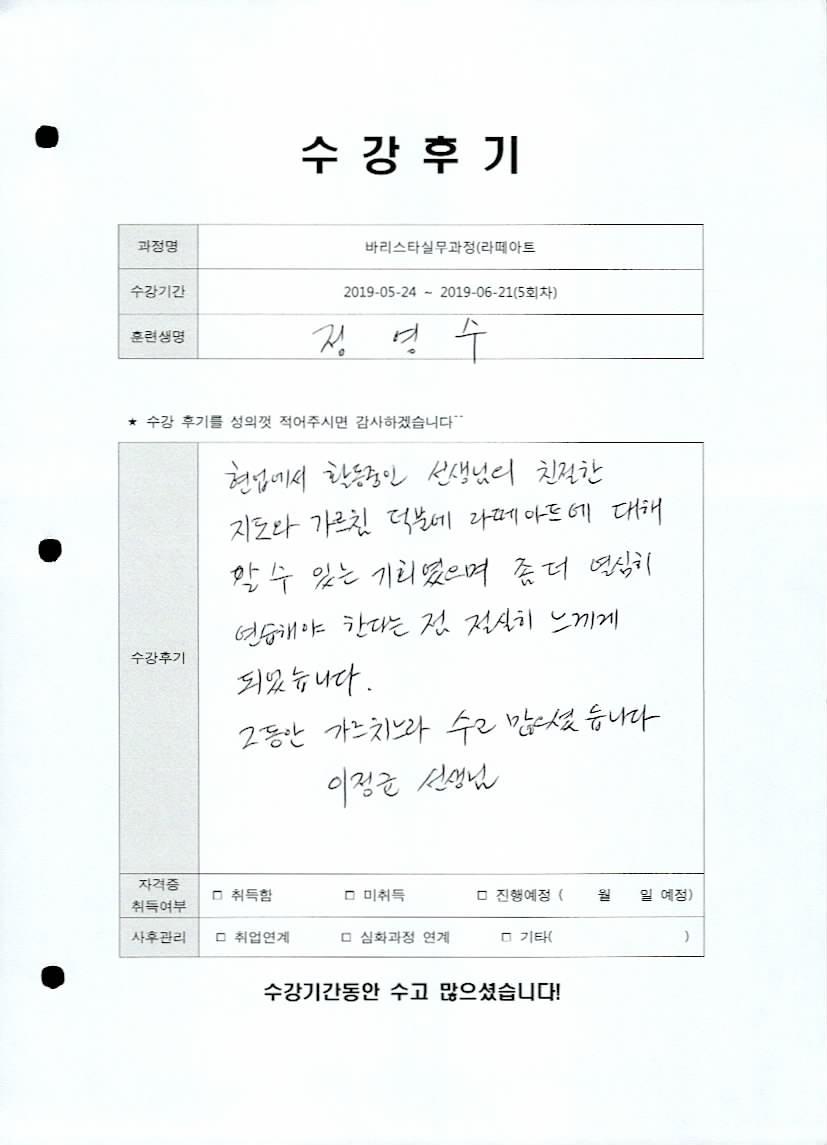 수강후기
과정명 바리스타실무과정(라떼아트
수강기간 2019-05-24 ~ 2019-06-21(5회차)
훈련생명 정 영 수
★ 수강 후기를 성의껏 적어주시면 감사하겠습니다^^
현업에서 활동중인 선생님의 친절한
지도와 가르침 덕분에 라떼아트에 대해
알 수 있는 기회였으며 좀더 열심히
연습해야 한다는 점 절실히 느끼게
수강후기
되었습니다.
그동안 가르치느라 수고 많으셨습니다
이정균 선생님
자격증 취득여부 □ 취득함 □ 미취득 □ 진행예정 ( 월 일 예정)
사후관리 □ 취업연계 □ 심화과정 연계 □ 기타( )
수강기간동안 수고 많으셨습니다!